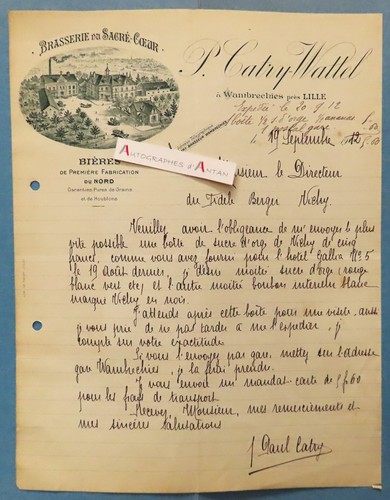 BRASSERIE DU SACRÉ-CŒUR
P. Catry-Wattel
à Wambrechies près LILLE
Expédié le 20 9 12
1 postal gare
19 Septembre 1912
BIÈRES
DE PREMIÈRE FABRICATION
DU NORD
Garanties Pures de Grains
et de Houblons
AUTOGRAPHES D'ANTAN
Monsieur le Directeur
du Fidèle Berger Vichy
Veuillez avoir l'obligeance de m'envoyer le plus
vite possible une boîte de sucre d'orge de Vichy de cinq
francs, comme vous avez fourni pour l'hôtel Gallia No 5
le 19 Août dernier, je désire moitié sucre d'orge, rouge
blanc vert etc, et l'autre moitié bonbon intérieur blanc
marqué Vichy en noir.
J'attends après cette boîte pour une visite, aussi
je vous prie de ne pas tarder à me l'expédier, je
compte sur votre exactitude
Si vous l'envoyez par gare, mettez sur l'adresse
gare Wambrechies, je la ferai prendre.
Je vous envoie un mandat carte de 5f,60
pour les frais de transport.
Recevez, Monsieur, mes remerciements et
mes sincères salutations
Paul Catry